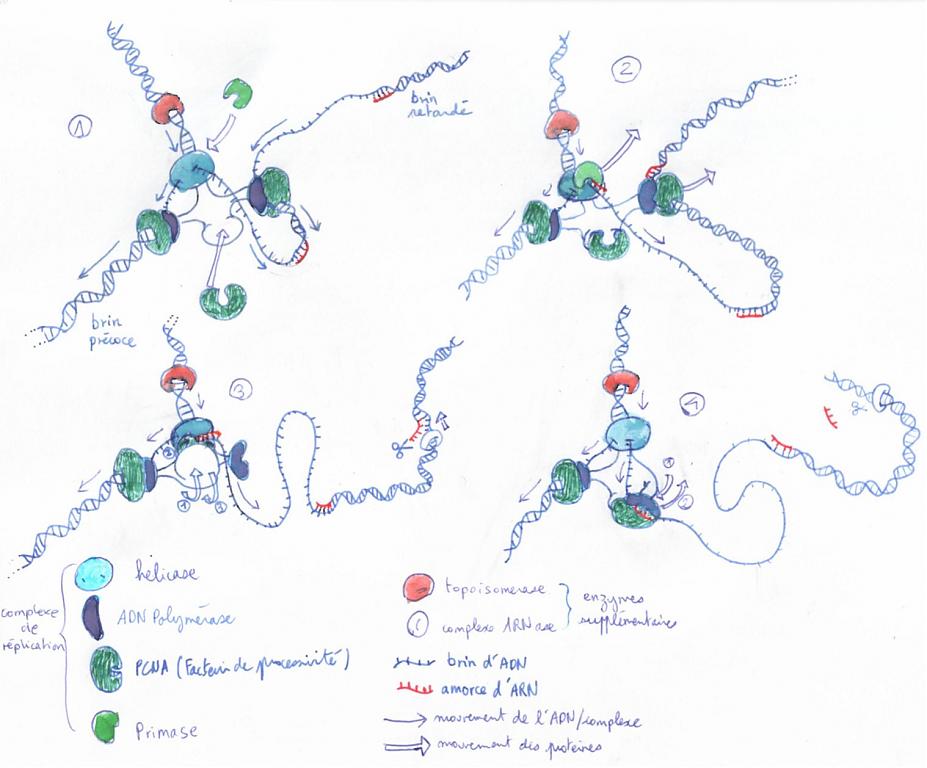 1
2
brin
retardé
brin
précoce
3
4
1
2
1
2
complexe
de
réplication
hélicase
ADN Polymérase
PCNA (Facteur de processivité)
Primase
topoisomerase
complexe ARNase
enzymes
supplémentaires
brin d'ADN
amorce d'ARN
mouvement de l'ADN/complexe
mouvement des protéines